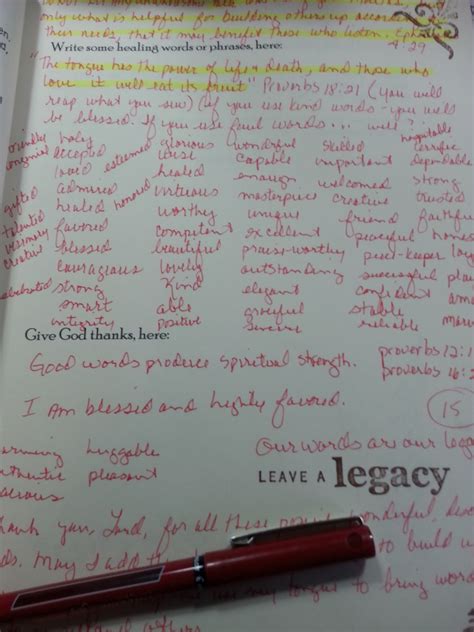 only what is helpful for building others up according
their needs, that it may benefit those who listen. Ephe
Write some healing words or phrases, here: 4:29
"The tongue has the power of life & death, and those who
love it will eat its fruit" Proverbs 18:21 (you will
reap what you sow) (if you use kind words - you will
be blessed. If you use foul words... well?
friendly holy glorious wonderful skilled hospitable terrific
accepted esteemed wise capable important dependable
loved healed enough welcomed strong
gifted admired honored virtuous masterpiece creative trusted
talented healed worthy unique friend faithful
visionary favored competent excellent peaceful hones
creative blessed beautiful praise-worthy peace-keeper
courageous lovely outstanding successful
celebrated strong kind elegant confident
smart able graceful stable
integrity positive sincere reliable
Give God thanks, here:
Good words produce spiritual strength. proverbs 12:1
proverbs 16:2
I am blessed and highly favored. 15
huggable Our words are our lega
authentic pleasant
LEAVE A legacy
hank you, Lord, for all these wonderful,
ds. May I add to build
my tongue to bring word